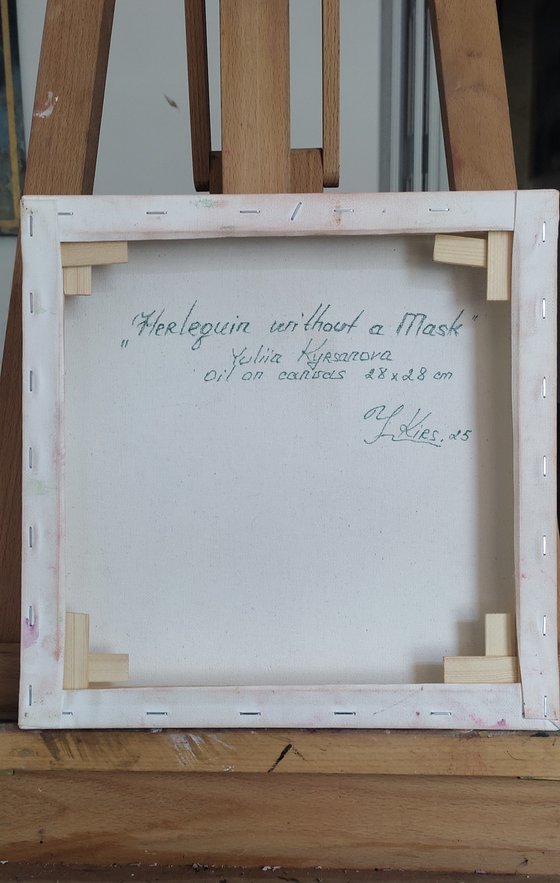 "Herlequin without a Mask"
Yuliia Kyrsanova
Oil on canvas 28x28 cm
Y. Kirs. 25